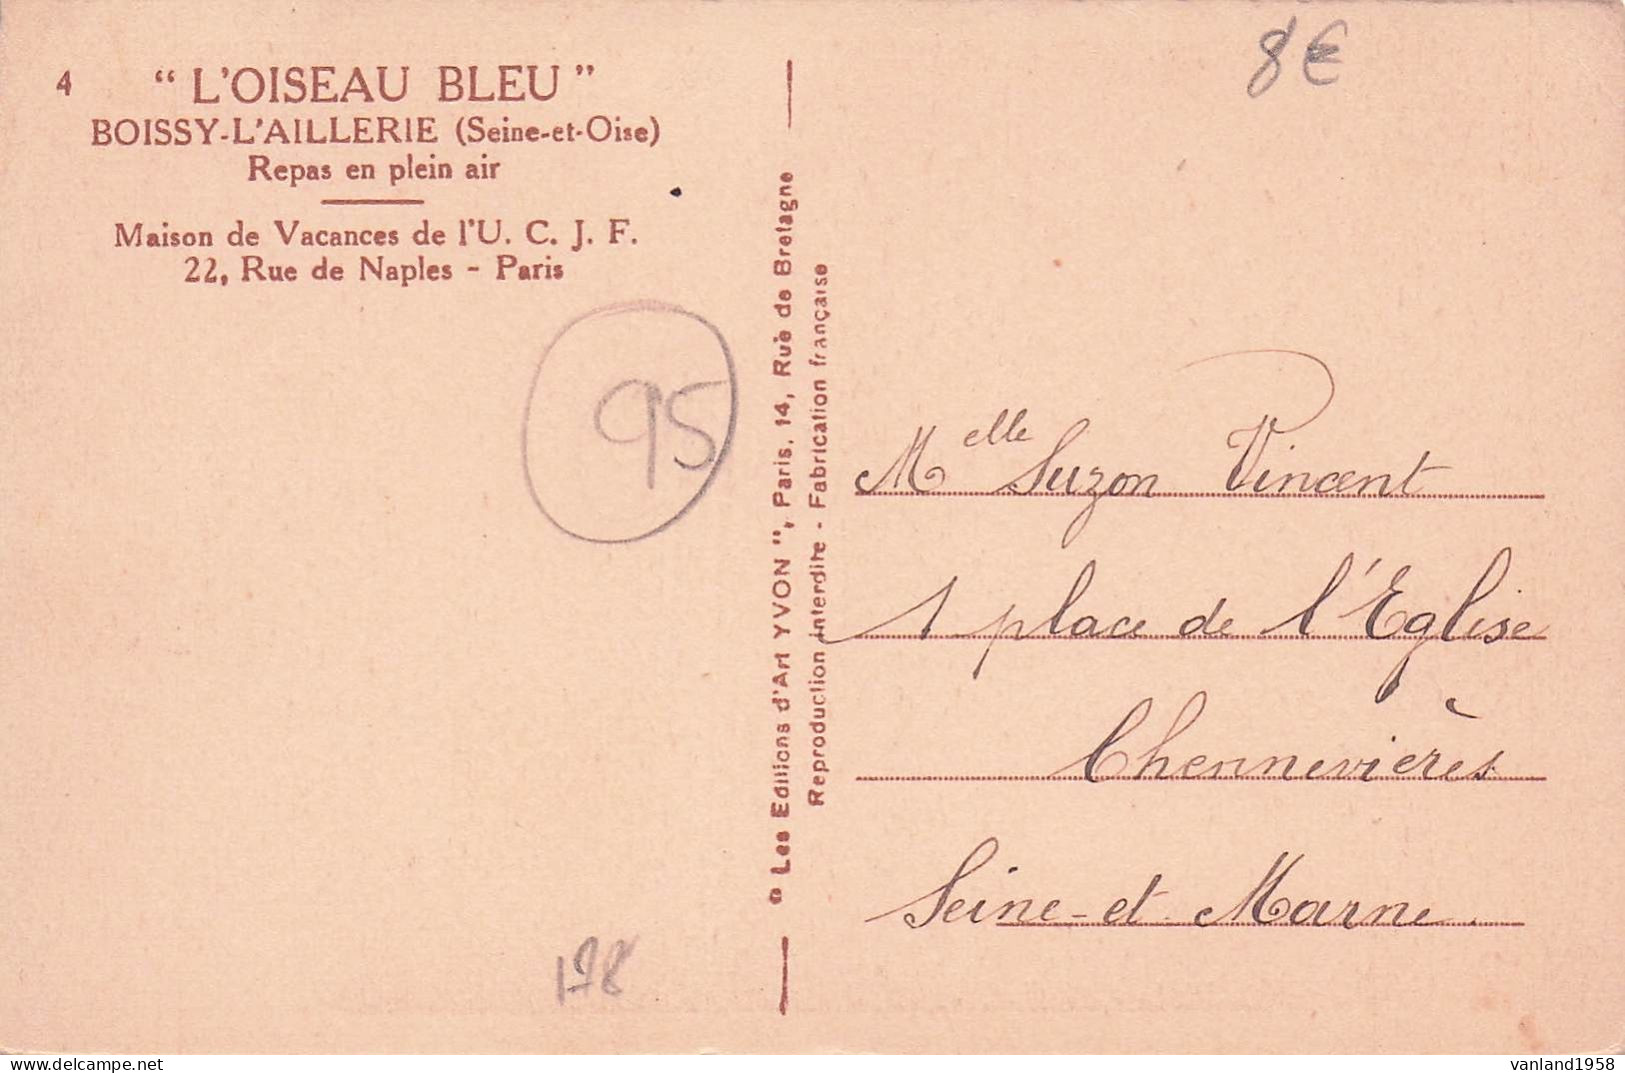 4
" L'OISEAU BLEU "
BOISSY-L'AILLERIE (Seine-et-Oise)
Repas en plein air
Maison de Vacances de l'U. C. J. F.
22, Rue de Naples - Paris
95
178
Les Editions d'Art YVON ", Paris. 14, Rue de Bretagne
Reproduction interdite - Fabrication française
8€
Melle Suzon Vincent
1 place de l'Eglise
Chennevières
Seine-et-Marne.
vanland1958